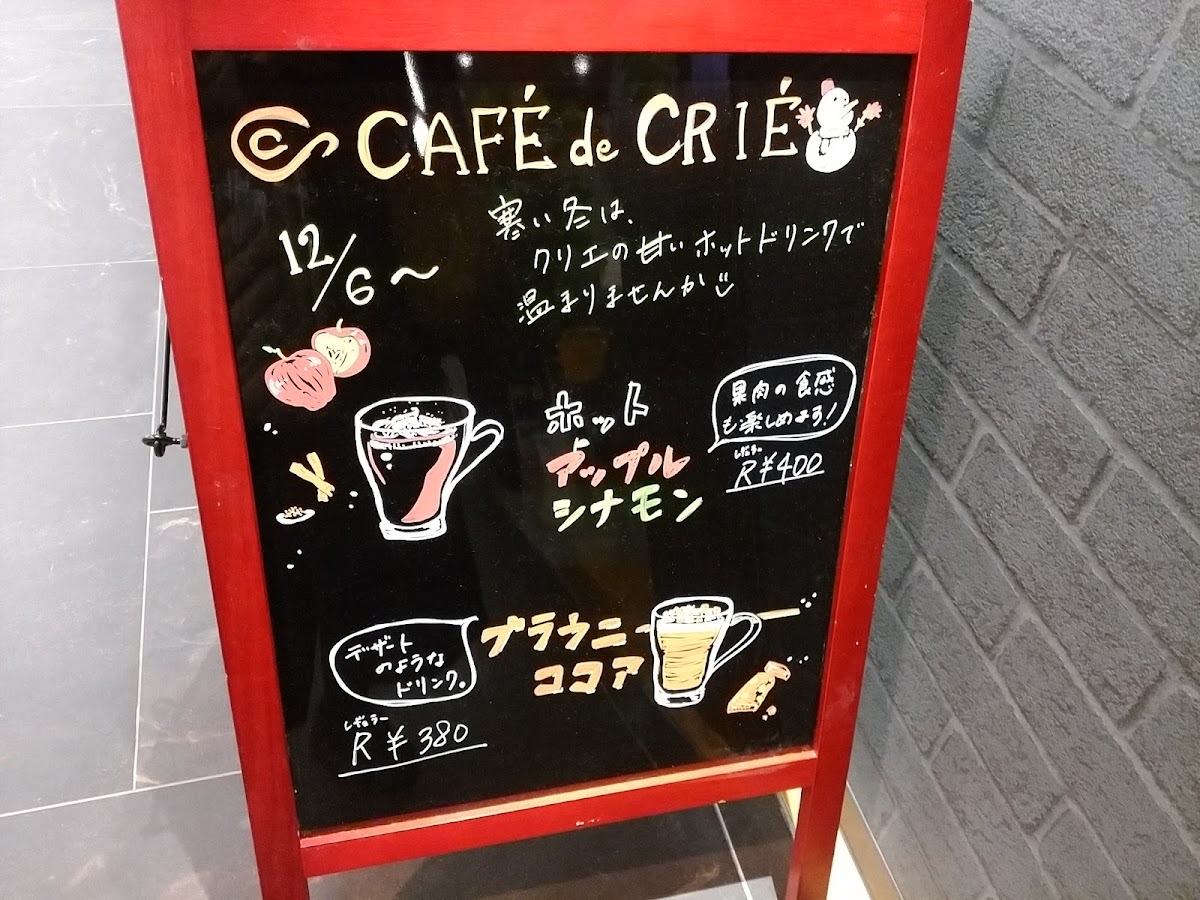 CAFÉ de CRIÉ
12/6〜
寒い冬は、
クリエの甘いホットドリンクで
温まりませんか
ホット
アップル
シナモン
果肉の食感
も楽しめます!
レギュラー
R ¥400
ブラウニー
ココア
デザート
のような
ドリンク。
レギュラー
R ¥380